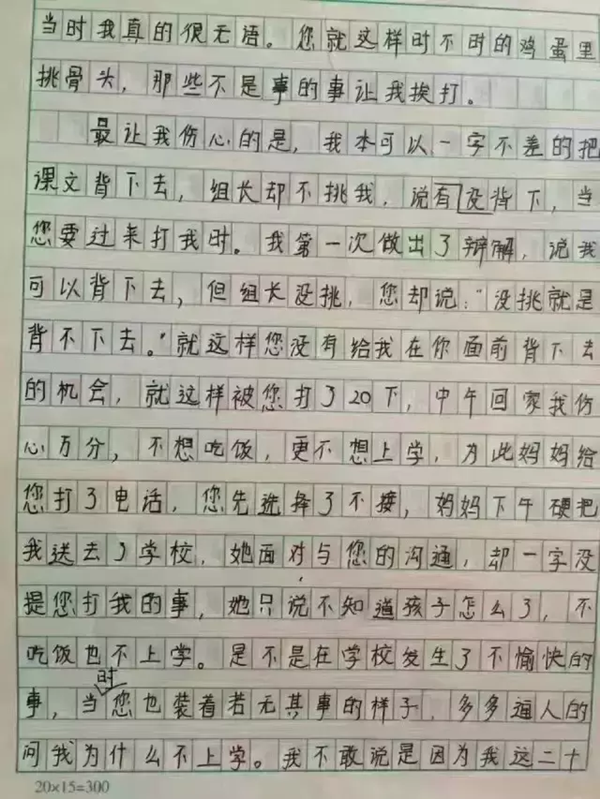 当时我真的很无语。您就这样时不时的鸡蛋里
挑骨头，那些不是事的事让我挨打。
最让我伤心的是，我本可以一字不差的把
课文背下去，组长却不挑我，说有没背下，当
您要过来打我时。我第一次做出了辩解，说我
可以背下去，但组长没挑，您却说："没挑就是
背不下去。"就这样您没有给我在你面前背下去
的机会，就这样被您打了20下，中午回家我伤
心万分，不想吃饭，更不想上学，为此妈妈给
您打了电话，您先选择了不接，妈妈下午硬把
我送去了学校，她面对与您的沟通，却一字没
提您打我的事，她只说不知道孩子怎么了，不
吃饭也不上学。是不是在学校发生了不愉快的
事，当时您也装着若无其事的样子，多多逼人的
问我为什么不上学。我不敢说是因为我这二十
20×15=300